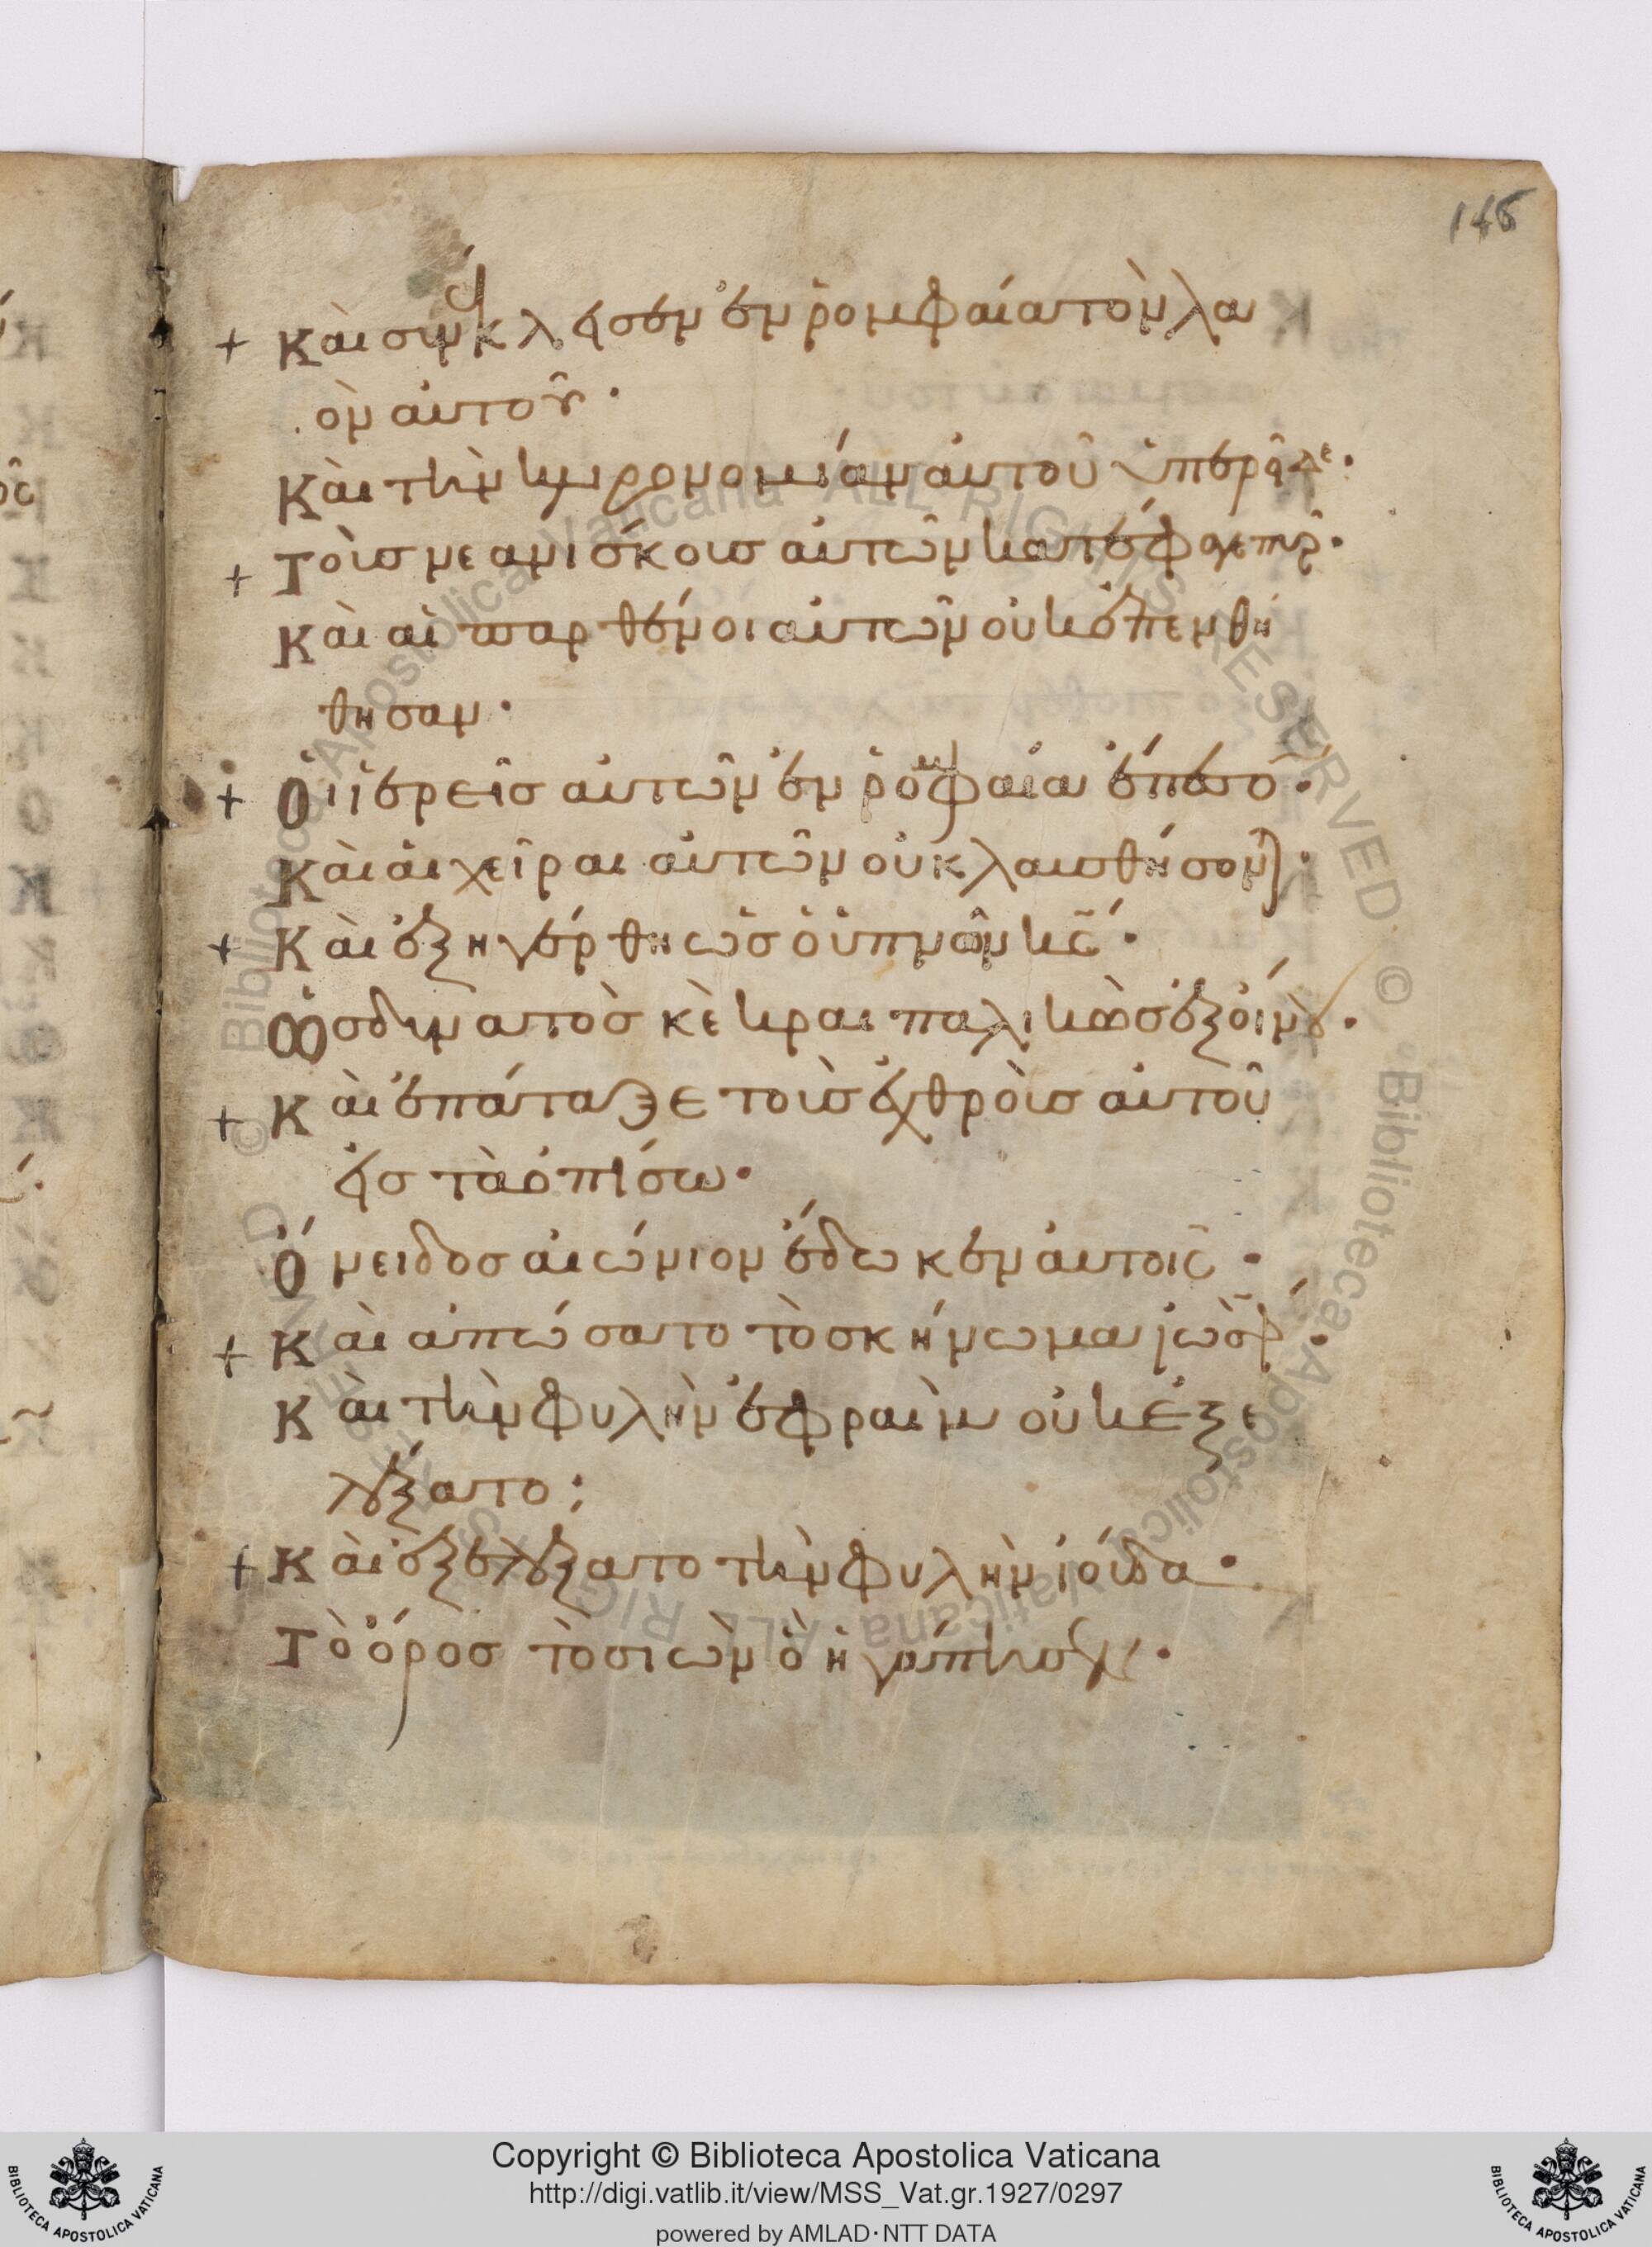 148
+ Κὰι συνέκλησεν ἐν ῥομφαία τὸν λα
ὸν αὐτοῦ·
Κὰι τὴν κληρονομίαν αὐτοῦ ὑπερῆδε·
+ Τοὺσ νεανίσκουσ αὐτῶν κατέφαγε πῦρ·
Κὰι αἱ παρθένοι αὐτῶν οὐκ ἐπενθή
θησαν·
+ Ὁι ἱερεῖσ αὐτῶν ἐν ῥομφαία ἔπεσο·
Κὰι ἁι χεῖραι αὐτῶν οὐ κλαυσθήσοντ·
+ Κὰι ἐξηγέρθη ὡσ ὁ ὑπνῶν κς·
Ὡσ δυνατὸσ κὲ κραιπαληκὼσ ἐξ ὄινου·
+ Κὰι ἐπάταξε τοὺσ ἐχθροὺσ αὐτοῦ
εἰσ τὰ ὀπίσω·
Ὄνειδοσ αἰώνιον ἔδωκεν αὐτοῖς·
+ Κὰι ἀπώσατο τὸ σκήνωμα ἰωσὴφ·
Κὰι τὴν φυλὴν ἐφραὶμ οὐκ ἐξε
λέξατο·
+ Κὰι ἐξελέξατο τὴν φυλὴν ἰούδα·
Τὸ ὄροσ τὸ σιὼν ὃ ἠγάπησεν·
Copyright © Biblioteca Apostolica Vaticana
http://digi.vatlib.it/view/MSS_Vat.gr.1927/0297
powered by AMLAD·NTT DATA